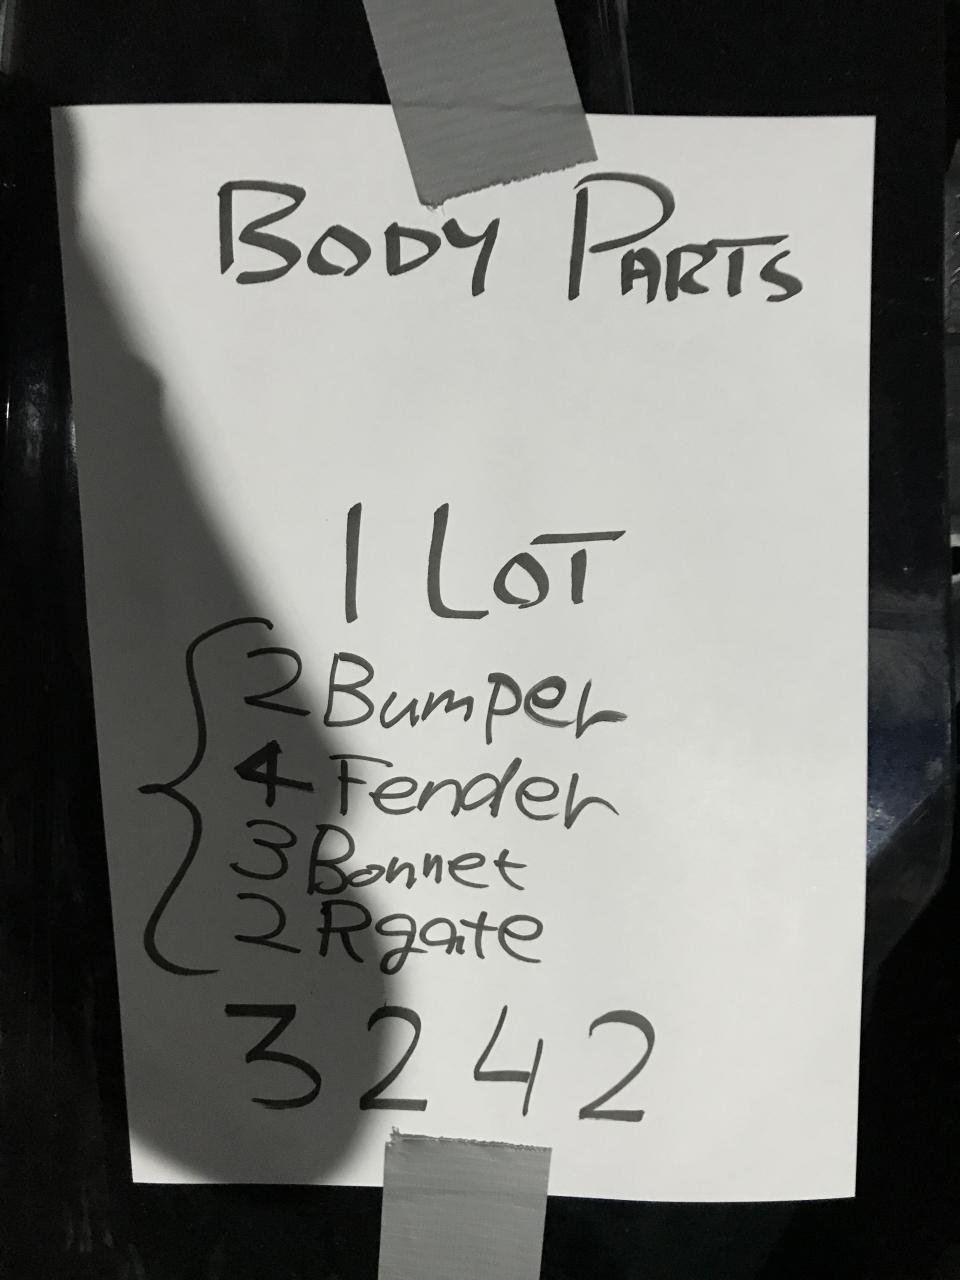 BODY PARTS
1 LOT
2 Bumper
4 Fender
3 Bonnet
2 Rgate
3242